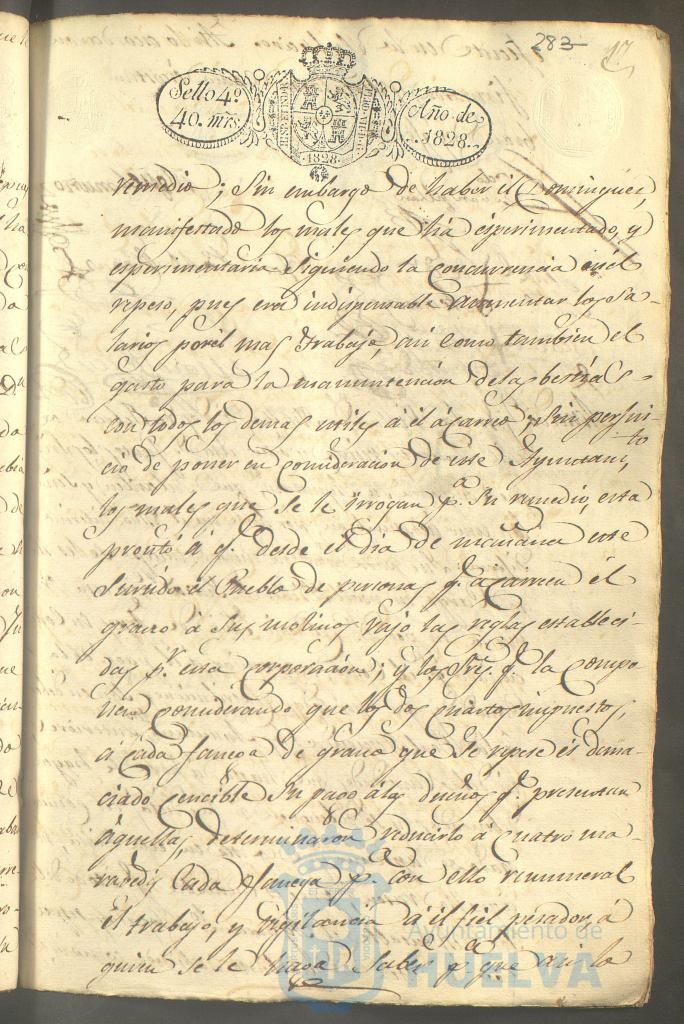 283
17
Sello 4º
40. mrs
HISP. ET IND. R.
1828.
Año de
1828.
remedio; Sin embargo de haber el Dominguez,
manifestado los males que há esperimentado, y
esperimentaria siguiendo la concurrencia en el
repeso, pues era indispensable aumentar los Sa-
larios porel mas trabajo, asi como tambien el
gasto para la manuntencion delas bestias
con todos los demas utiles á el ácarreo, y sin perjui-
cio de poner en consideracion de este Ayuntam,to
los males que se le irrogan pª. su remedio, esta
pronto á q.e desde el dia de mañana este
Surtido el Pueblo de personas q.e acarreen el
grano á sus molinos vajo las reglas estableci-
das pr. esta corporacion; y los Sres. q.e la compo
nen considerando que los dos cuartos impuestos,
á cada fanega de grano que se repese és dema-
ciado cencible su pago álos dueños q.e presentan
áquella, determinaron reducirlo á cuatro ma-
ravedis cada fanega pª con ello remunerar
el trabajo, y vigilancia á el fiel pesador, á
quien se le haga saber pª que asi lo
Ayuntamiento de
HUELVA